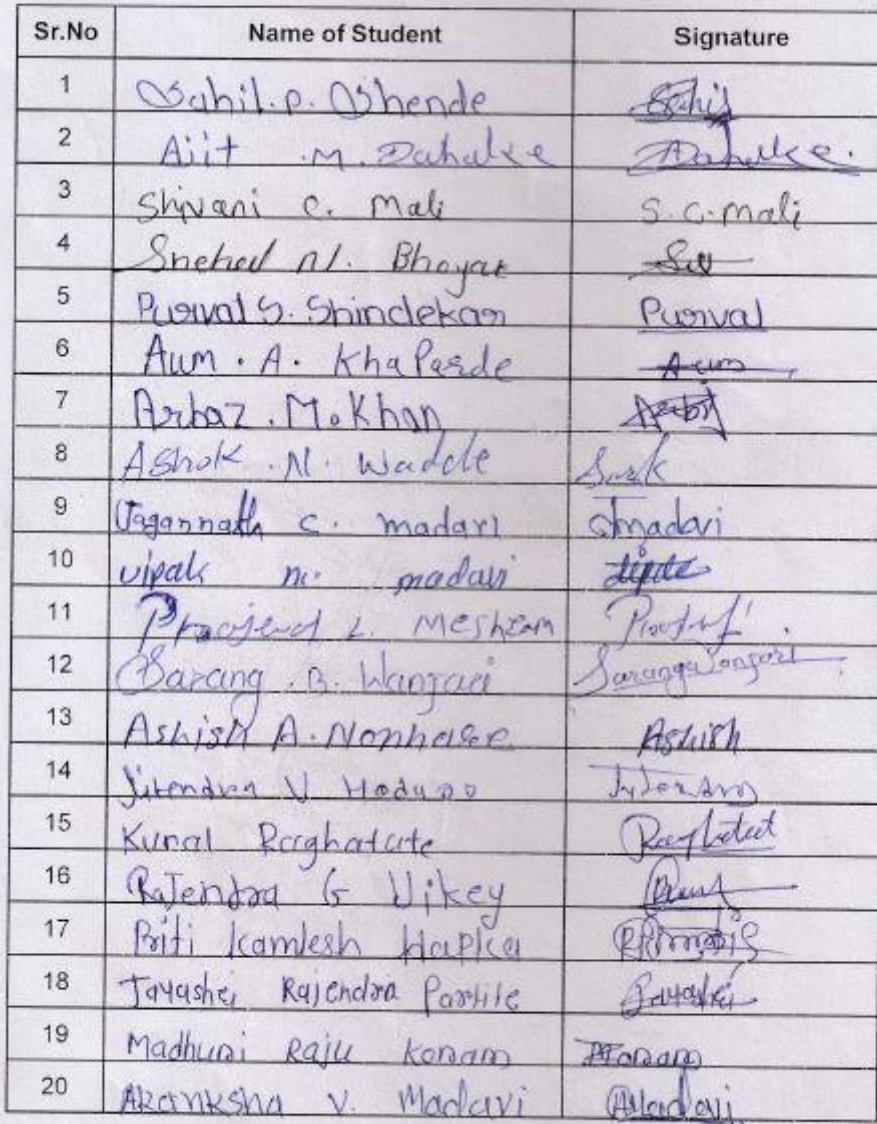 Sr.No Name of Student Signature
1 Sahil. P. Shende
2 Ajit . M. Dahake Dahake.
3 Shivani C. Mali S. C. Mali
4 Snehal N. Bhoyar
5 Purval S. Shindekar Purval
6 Aum . A. Khaparde Aum
7 Arbaz . M. Khan
8 Ashok . N. Wadde
9 Jagannath C. madavi Jmadavi
10 vipak m. madavi
11 L. Meshram
12 Sarang . B. Wanjari Sarang Wanjari
13 Ashish A. Ashish
14 Jitendra V
15 Kunal Raghatate
16 Rajendra G Uikey
17 Priti Kamlesh Hapka
18 Jayashri Rajendra Jayashri
19 Madhuri Raju Konam Konam
20 Akanksha V. Madavi AMadavi